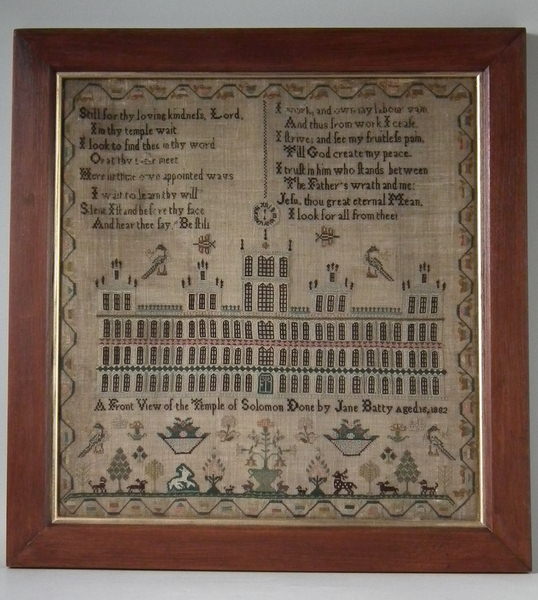 Still for thy loving kindness, Lord,
I in thy temple wait
I look to find thee in thy word
Or at thy meet
Here in thine own appointed ways
I wait to learn thy will
Silent I st and before thy face
And hear thee say "Be still
I work, and own my labour vain
And thus from work I cease.
I strive; and see my fruitless pain,
Till God create my peace.
I trust in him who stands between
The Father's wrath and me:
Jesu, thou great eternal Mean,
I look for all from thee:
A Front View of the Temple of Solomon Done by Jane Batty Aged 16, 1862